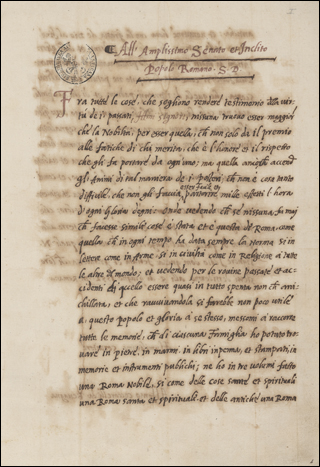 All' Amplissimo Senato et Inclito
Popolo Romano. S. D.
Fra tutte le cose, che sogliono rendere testimonio della vir
tù de i passati, nissuna truovo esser maggior
che la Nobiltà; per esser quella, che non solo dà il premio
alle fatiche di chi merita, che è l'honore et il rispetto
che gli fa portare da ogniuno; ma quella anchora accend
gli Animi di tal maniera de i posteri, che non è cosa tanto
difficile, che non gli faccia partorire mille effetti l'hora
d'ogni gloria degni. Onde vedendo che se nissuna fu mai
che facesse simile cose è stata et è questa di Roma; come
quella che in ogni tempo ha data sempre la norma sì in
lettere come in Arme, sì in civiltà come in Religione à tutte
le altre del mondo; et vedendo per le rovine passate et ac-
cidenti di quello essere quasi in tutto spenta
et che ravvivandola si farebbe non poco utile
a questo popolo et gloria a se stesso, messomi a raccorre
tutte le memorie, che di ciascuna Famiglia ho potuto tro
vare in pietre, in marmi, in libri in penna, et stampati, in
memorie et instrumenti publichi, ne ho in tre volumi fatto
una Roma Nobile, sì come delle cose sante et spirituali
una Roma santa et spirituale, et delle antiche una Roma